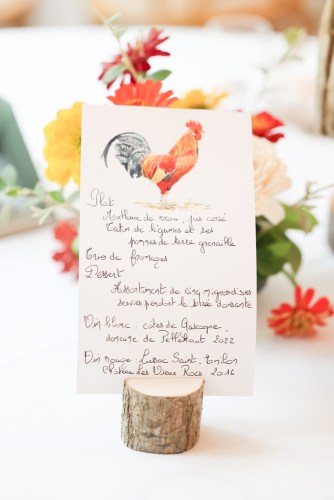 Plat
Moelleux de veau, jus corsé
Tatin de légumes et ses
pommes de terre grenaille
Trio de fromages
Dessert
Assortiment de cinq mignardises
servies pendant la soirée dansante
Vin blanc : côtes de Gascogne,
domaine de Pellehaut 2022
Vin rouge : Lussac Saint-Emilion
Château Les Vieux Rocs 2016